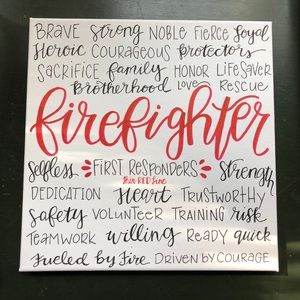 BRAVE strong NOBLE Fierce loyal
Heroic COURAGEOUS protectors
SACRIFICE family HONOR LIFESAVER
Brotherhood LOVE RESCUE
firefighter
Selfless FIRST RESPONDERS Strength
thin RED line
DEDICATION Heart TRUSTWORTHY
Safety VOLUNTEER TRAINING risk
TEAMWORK willing READY quick
Fueled by Fire DRIVEN BY COURAGE